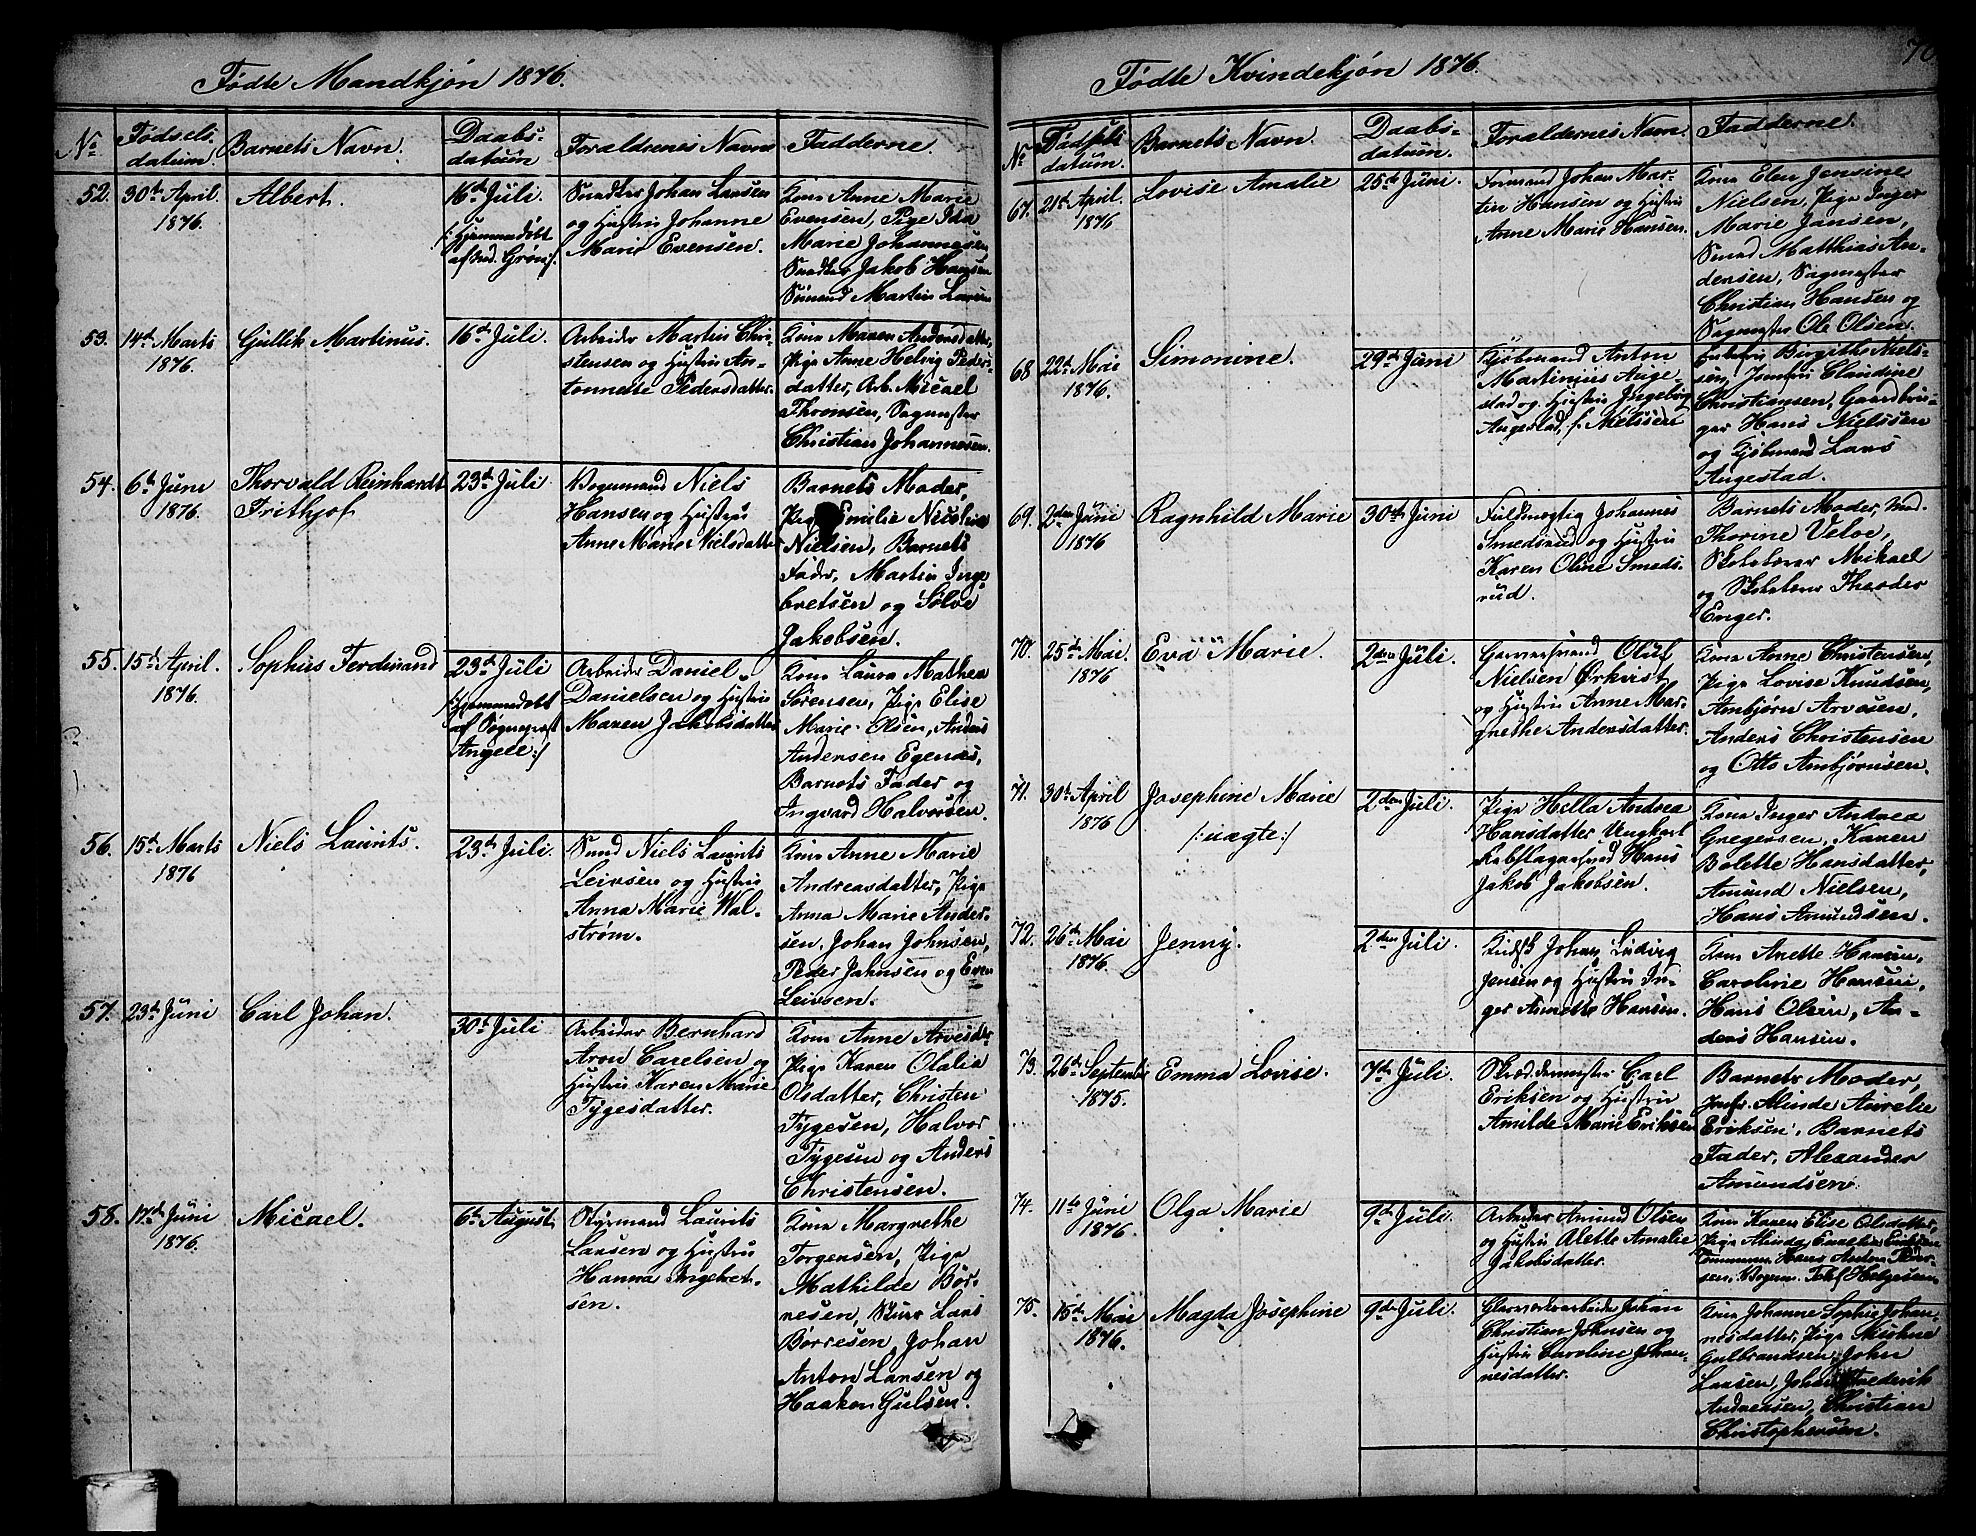 Fødte Mandkjøn 1876.
No
Fødsels
datum.
Barnets Navn.
Daabs-
datum
Forældrenes Navne
Fadderne.
52.
30te April
1876.
Albert.
16de Juli.
/: Hjemmedøbt
af Grøn :/
Johan Larsen
og Hustru Johanne
Marie Evensen.
Kone Anne Marie
Evensen, Pige Ida
Marie Johannesen,
Jakob Hansen
Sømand Martin Larsen
53.
14de Marts
1876.
Gullik Martinus.
16de Juli.
Arbeider Martin Chri-
stensen og Hustru An-
tonnette Pedersdatter.
Kone Maren Andersdatter,
Pige Anne Helvig Peder-
datter, Arb. Micael
Thronsen, Sagmester
Christian Johannesen.
54.
6te Juni
1876.
Thorvald Reinhardt
Frithjof
23de Juli
Bogmand Niels
Hansen og Hustru
Anne Marie Nielsdatter
Barnets Moder,
Pige Emilie Nicoline
Nielsen, Barnets
Fader, Martin Inge-
bretsen og Sølve
Jakobsen.
55.
15de April.
1876.
Sophus Ferdinand
23de Juli
/: Hjemmedøbt
af Sogneprest
Angell :/
Arbeider Daniel
Danielsen og Hustru
Maren Jakobsdatter
Kone Laura Mathea
Sørensen, Pige Elise
Marie Olsen, Anders
Andersen Egenæs,
Barnets Fader og
Ingvard Halvorsen.
56.
15de Marts
1876
Niels Laurits.
23de Juli.
Sømd Niels Laurits
Leivsen og Hustru
Anna Marie Wal-
strøm.
Kone Anne Marie
Andreasdatter, Pige
Anna Marie Ander-
sen, Johan Johnsen,
Peder Jahnsen og Even
Leivsen.
57.
23de Juni
Carl Johan.
30te Juli
Arbeider Bernhard
Aron Carelsen og
Hustru Karen Marie
Tygesdatter.
Kone Anne Arvesdtr
Pige Karen Olalia
Olsdatter, Christen
Tygesen, Halvor
Tygesen og Anders
Christensen.
58.
17de Juni
1876.
Micael.
6te August.
Styrmand Laurits
Larsen og Hustru
Hanna Ingebret-
sen.
Kone Margrethe
Torgersen, Pige
Mathilde Bør-
resen, Lars
Borresen, Johan
Anton Larsen og
Haakon Gulsen.
70.
Fødte Kvindekjøn 1876.
No
Fødsels
datum.
Barnets Navn.
Daabs-
datum.
Forældernes Navn.
Fadderne.
67.
21de April.
1876
Lovise Amalie
25de Juni.
Formand Johan Mar-
tin Hansen og Hustru
Anne Marie Hansen.
Kone Elen Jensine
Nielsen, Pige Inger
Marie Jansen,
Sømd Matthias An-
dersen, Sagmester
Christian Hansen og
Sagmester Ole Olsen.
68
22de Mai
1876.
Simonine.
29de Juni
Kjøbmand Anton
Martinius Auge-
stad og Hustru Ingeborg
Augestad, f. Nielssen
Birgithe Niels-
sen, Jomfru Claudine
Christiansen, Gaardbru-
ger Hans Nielssen
og Kjøbmand Lars
Augestad.
69.
2den Juni
1876
Ragnhild Marie
30te Juni
Fuldmægtig Johannes
Smedsrud og Hustru
Karen Oline Smeds-
rud.
Barnets Moder,
Thorine Velve,
Mikael
og Theodor
Enger.
70.
25de Mai.
1876
Eva Marie.
2den Juli.
Garversvend Oluf
Nielsen Ørkvist
og Hustru Anne Mar-
grethe Andersdatter.
Kone Anne Christensen,
Pige Lovise Knudsen,
Ambjørn Arvesen,
Anders Christensen
og Otto Ambjørnsen.
71.
30te April
1876
Josephine Marie
/: uægte :/
2den Juli.
Pige Hella Andrea
Hansdatter Ungkarl
Hans
Jakob Jakobsen.
Kone Inger Andrea
Gregersen, Karen
Bolette Hansdatter,
Amund Nielsen,
Hans Amundsen.
72.
26de Mai
1876.
Jenny.
2den Juli.
Johan Ludvig
Jensen og Hustru In-
ger Annette Hansen.
Kone Anette Hansen,
Caroline Hansen,
Hans Olsen, An-
ders Hansen.
73.
26de September
1875.
Emma Lovise.
7de Juli.
Skræddermester Carl
Eriksen og Hustru
Amilde Marie Eriksen
Barnets Moder,
Jomfr. Alinde Aurelie
Eriksen, Barnets
Fader, Alexander
Amundsen
74.
11te Juni
1876.
Olga Marie
9de Juli.
Arbeider Amund Olsen
og Hustru Alette Amalie
Jakobsdatter.
Kone Karen Elise Olsdatter,
Pige Alinda Eriksen
Tømmerm. Hans Anton Peder-
sen, Helgesen
75.
15de Mai
1876.
Magda Josephine
9de Juli.
Glasværksarbeider Johan
Christian Johnsen og
Hustru Caroline Johan-
nesdatter.
Kone Johanne Sophie Johan-
nesdatter, Pige
Gulbrandsen, John
Larsen, Johan Frederik
Andreasen, Christian
Christophersen.